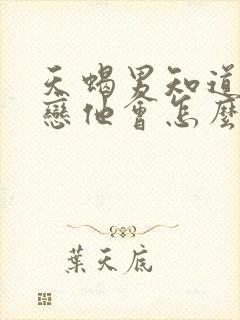 天蝎男知道
戀他會怎麼
葉天底